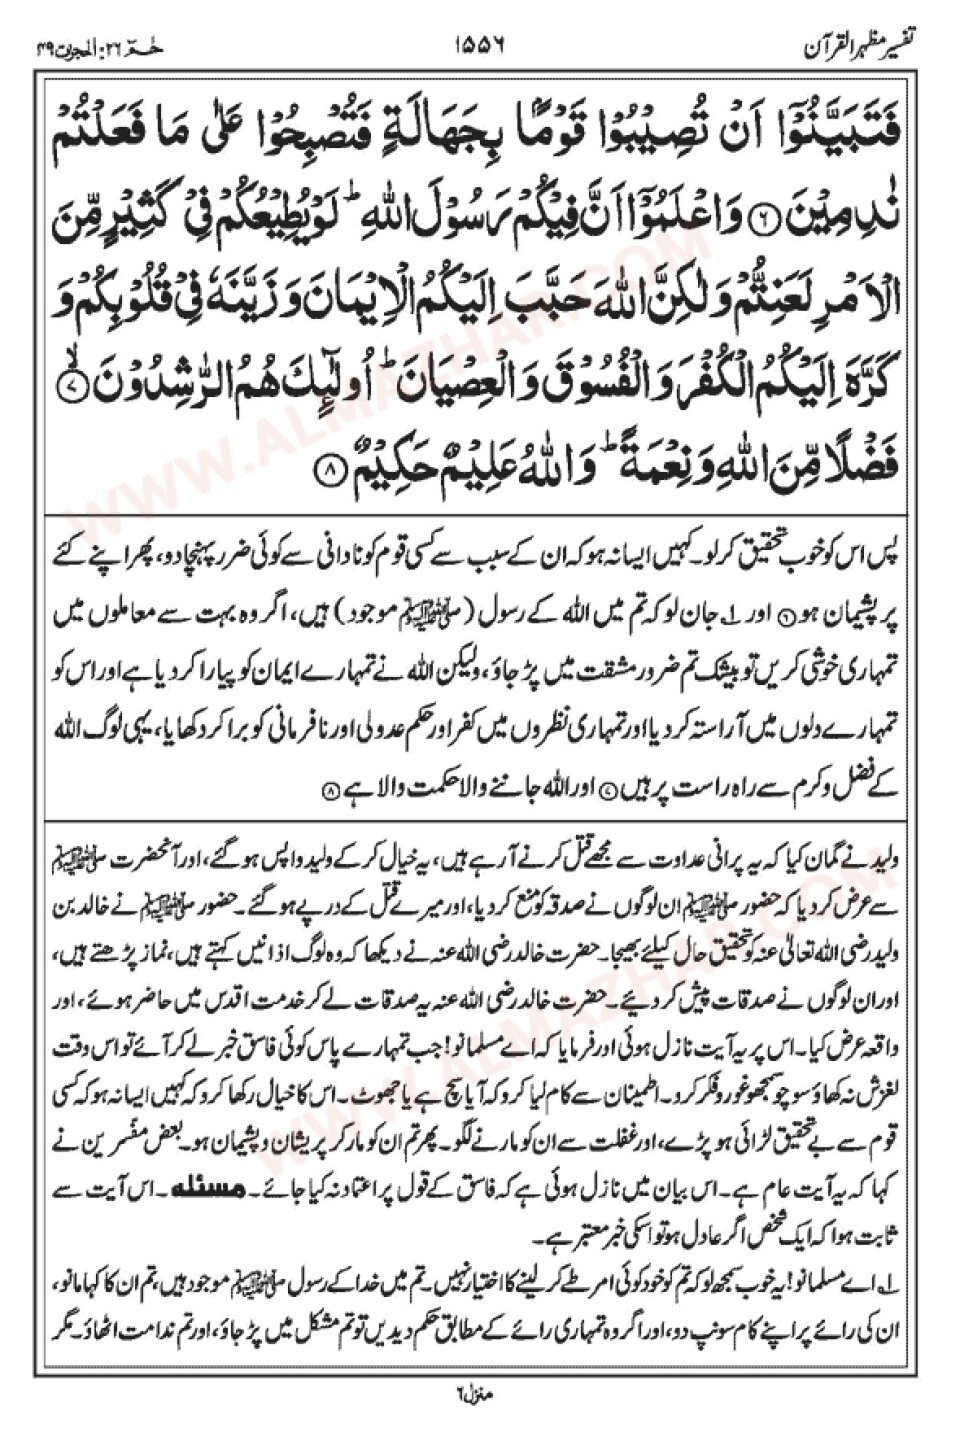 تفسیر مظہر القرآن ۱۵۵۶ حٰمٓ ۲۶: الحجرٰت ۴۹
فَتَبَيَّنُوْٓا اَنْ تُصِيْبُوْا قَوْمًۢا بِجَهَالَةٍ فَتُصْبِحُوْا عَلٰى مَا فَعَلْتُمْ
نٰدِمِيْنَ ﴿۶﴾ وَاعْلَمُوْٓا اَنَّ فِيْكُمْ رَسُوْلَ اللّٰهِ ؕ لَوْ يُطِيْعُكُمْ فِيْ كَثِيْرٍ مِّنَ
الْاَمْرِ لَعَنِتُّمْ وَلٰكِنَّ اللّٰهَ حَبَّبَ اِلَيْكُمُ الْاِيْمَانَ وَ زَيَّنَهٗ فِيْ قُلُوْبِكُمْ وَ
كَرَّهَ اِلَيْكُمُ الْكُفْرَ وَالْفُسُوْقَ وَالْعِصْيَانَ ؕ اُولٰٓئِكَ هُمُ الرّٰشِدُوْنَ ﴿۷﴾ ۙ
فَضْلًا مِّنَ اللّٰهِ وَ نِعْمَةً ؕ وَاللّٰهُ عَلِيْمٌ حَكِيْمٌ ﴿۸﴾
پس اس کو خوب تحقیق کر لو۔ کہیں ایسا نہ ہو کہ ان کے سبب سے کسی قوم کو نادانی سے کوئی ضرر پہنچا دو، پھر اپنے کئے
پر پشیمان ہو ﴿۶﴾ اور ۱؎ جان لو کہ تم میں اللہ کے رسول (ﷺ موجود) ہیں، اگر وہ بہت سے معاملوں میں
تمہاری خوشی کریں تو بیشک تم ضرور مشقت میں پڑ جاؤ، ولیکن اللہ نے تمہارے ایمان کو پیارا کر دیا ہے اور اس کو
تمہارے دلوں میں آراستہ کر دیا اور تمہاری نظروں میں کفر اور حکم عدولی اور نافرمانی کو برا کر دکھایا، یہی لوگ اللہ
کے فضل و کرم سے راہ راست پر ہیں ﴿۷﴾ اور اللہ جاننے والا حکمت والا ہے ﴿۸﴾
ولید نے گمان کیا کہ یہ پرانی عداوت سے مجھے قتل کرنے آ رہے ہیں، یہ خیال کر کے ولید واپس ہو گئے، اور آنحضرت ﷺ
سے عرض کر دیا کہ حضور ﷺ ان لوگوں نے صدقہ کو منع کر دیا، اور میرے قتل کے درپے ہو گئے۔ حضور ﷺ نے خالد بن
ولید رضی اللہ تعالیٰ عنہ کو تحقیق حال کیلئے بھیجا۔ حضرت خالد رضی اللہ عنہ نے دیکھا کہ وہ لوگ اذانیں کہتے ہیں، نماز پڑھتے ہیں،
اور ان لوگوں نے صدقات پیش کر دیئے۔ حضرت خالد رضی اللہ عنہ یہ صدقات لے کر خدمت اقدس میں حاضر ہوئے، اور
واقعہ عرض کیا۔ اس پر یہ آیت نازل ہوئی اور فرمایا کہ اے مسلمانو! جب تمہارے پاس کوئی فاسق خبر لے کر آئے تو اس وقت
لغزش نہ کھاؤ سوچو سمجھو غور و فکر کرو۔ اطمینان سے کام لیا کرو کہ آیا سچ ہے یا جھوٹ۔ اس کا خیال رکھا کرو کہ کہیں ایسا نہ ہو کہ کسی
قوم سے بے تحقیق لڑائی ہو پڑے، اور غفلت سے ان کو مارنے لگو۔ پھر تم ان کو مار کر پریشان و پشیمان ہو۔ بعض مفسرین نے
کہا کہ یہ آیت عام ہے۔ اس بیان میں نازل ہوئی ہے کہ فاسق کے قول پر اعتماد نہ کیا جائے۔ مسئلہ۔ اس آیت سے
ثابت ہوا کہ ایک شخص اگر عادل ہو تو اسکی خبر معتبر ہے۔
۱؎ اے مسلمانو! یہ خوب سمجھ لو کہ تم کو خود کوئی امر طے کر لینے کا اختیار نہیں۔ تم میں خدا کے رسول ﷺ موجود ہیں، تم ان کا کہا مانو،
ان کی رائے پر اپنے کام سونپ دو، اور اگر وہ تمہاری رائے کے مطابق حکم دیدیں تو تم مشکل میں پڑ جاؤ، اور تم ندامت اٹھاؤ۔ مگر
منزل ۶
WWW.ALMAZHAR.COM
WWW.ALMAZHAR.COM